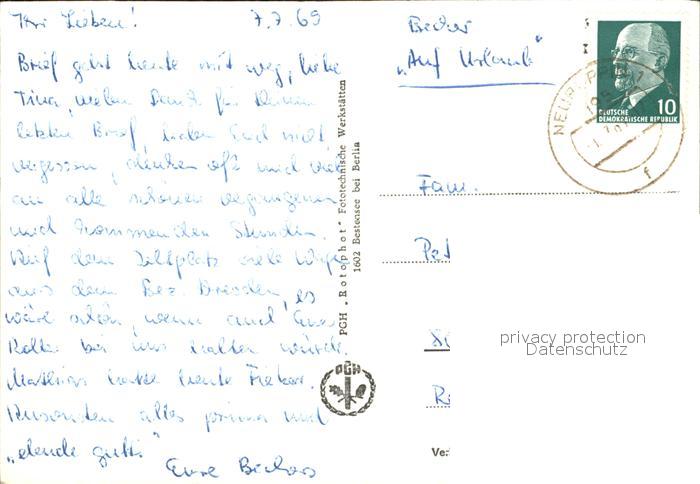 Ihr Lieben! 7.7.69
Brief geht heute mit weg, liebe
Tina, vielen Dank für Deinen
letzten Brief, haben Euch nicht
vergessen, denken oft und viel
an alle schönen vergangenen
und kommenden Stunden.
Auf dem Zeltplatz viele
aus dem Bez. Dresden, es
wäre schön, wenn auch Euer
bei uns halten würde.
Mathias hatte heute Fieber.
Ansonsten alles prima und
„elende gutt."
Eure Beckers
PGH „Rotophot" Fototechnische Werkstätten
1602 Bestensee bei Berlin
PGH
Becker
„Auf Urlaub"
10
DEUTSCHE
DEMOKRATISCHE REPUBLIK
NEURUPPIN 1
f
Fam.
Pet
privacy protection
Datenschutz
R
Ver